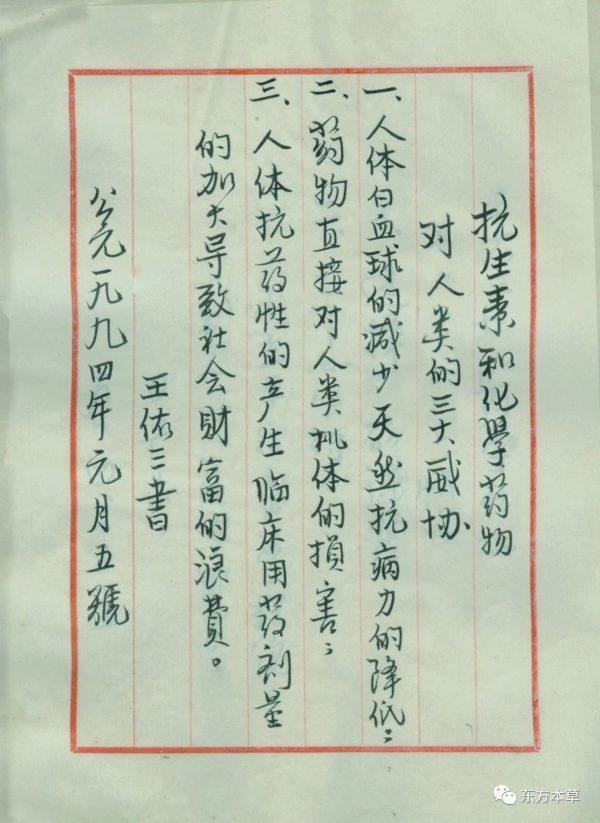 抗生素和化學药物
对人类的三大威协
一、人体白血球的减少天然抗病力的降低；
二、药物直接对人类机体的損害；
三、人体抗药性的产生临床用药剂量
的加大导致社会财富的浪費。
王佑三書
公元一九九四年元月五號
东方本草